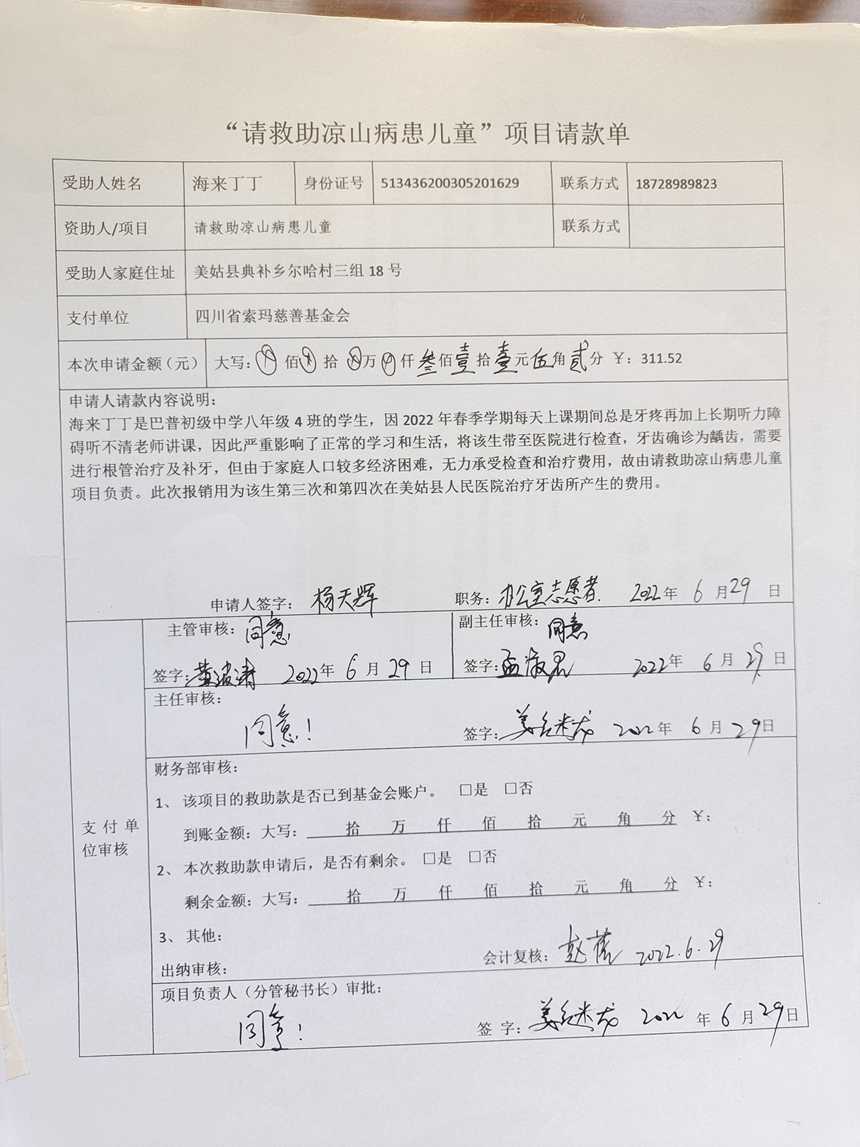 “请救助凉山病患儿童”项目请款单
受助人姓名 海来丁丁 身份证号 513436200305201629 联系方式 18728989823
资助人/项目 请救助凉山病患儿童 联系方式
受助人家庭住址 美姑县典补乡尔哈村三组18号
支付单位 四川省索玛慈善基金会
本次申请金额（元） 大写： 佰 拾 万 仟 叁佰壹拾壹元伍角贰分 ￥：311.52
申请人请款内容说明：
海来丁丁是巴普初级中学八年级4班的学生，因2022年春季学期每天上课期间总是牙疼再加上长期听力障
碍听不清老师讲课，因此严重影响了正常的学习和生活，将该生带至医院进行检查，牙齿确诊为龋齿，需要
进行根管治疗及补牙，但由于家庭人口较多经济困难，无力承受检查和治疗费用，故由请救助凉山病患儿童
项目负责。此次报销用为该生第三次和第四次在美姑县人民医院治疗牙齿所产生的费用。
申请人签字： 杨天辉 职务：办公室志愿者 2022年6月29日
主管审核：同意 副主任审核：同意
签字： 2022年6月29日 签字： 2022年6月29日
主任审核：
同意！ 签字： 2022年6月29日
支付单位审核
财务部审核：
1、 该项目的救助款是否已到基金会账户。 □是 □否
到账金额：大写： 拾 万 仟 佰 拾 元 角 分 ￥：
2、 本次救助款申请后，是否有剩余。 □是 □否
剩余金额：大写： 拾 万 仟 佰 拾 元 角 分 ￥：
3、 其他：
出纳审核： 会计复核： 2022.6.29
项目负责人（分管秘书长）审批：
同意！ 签 字： 2022年6月29日